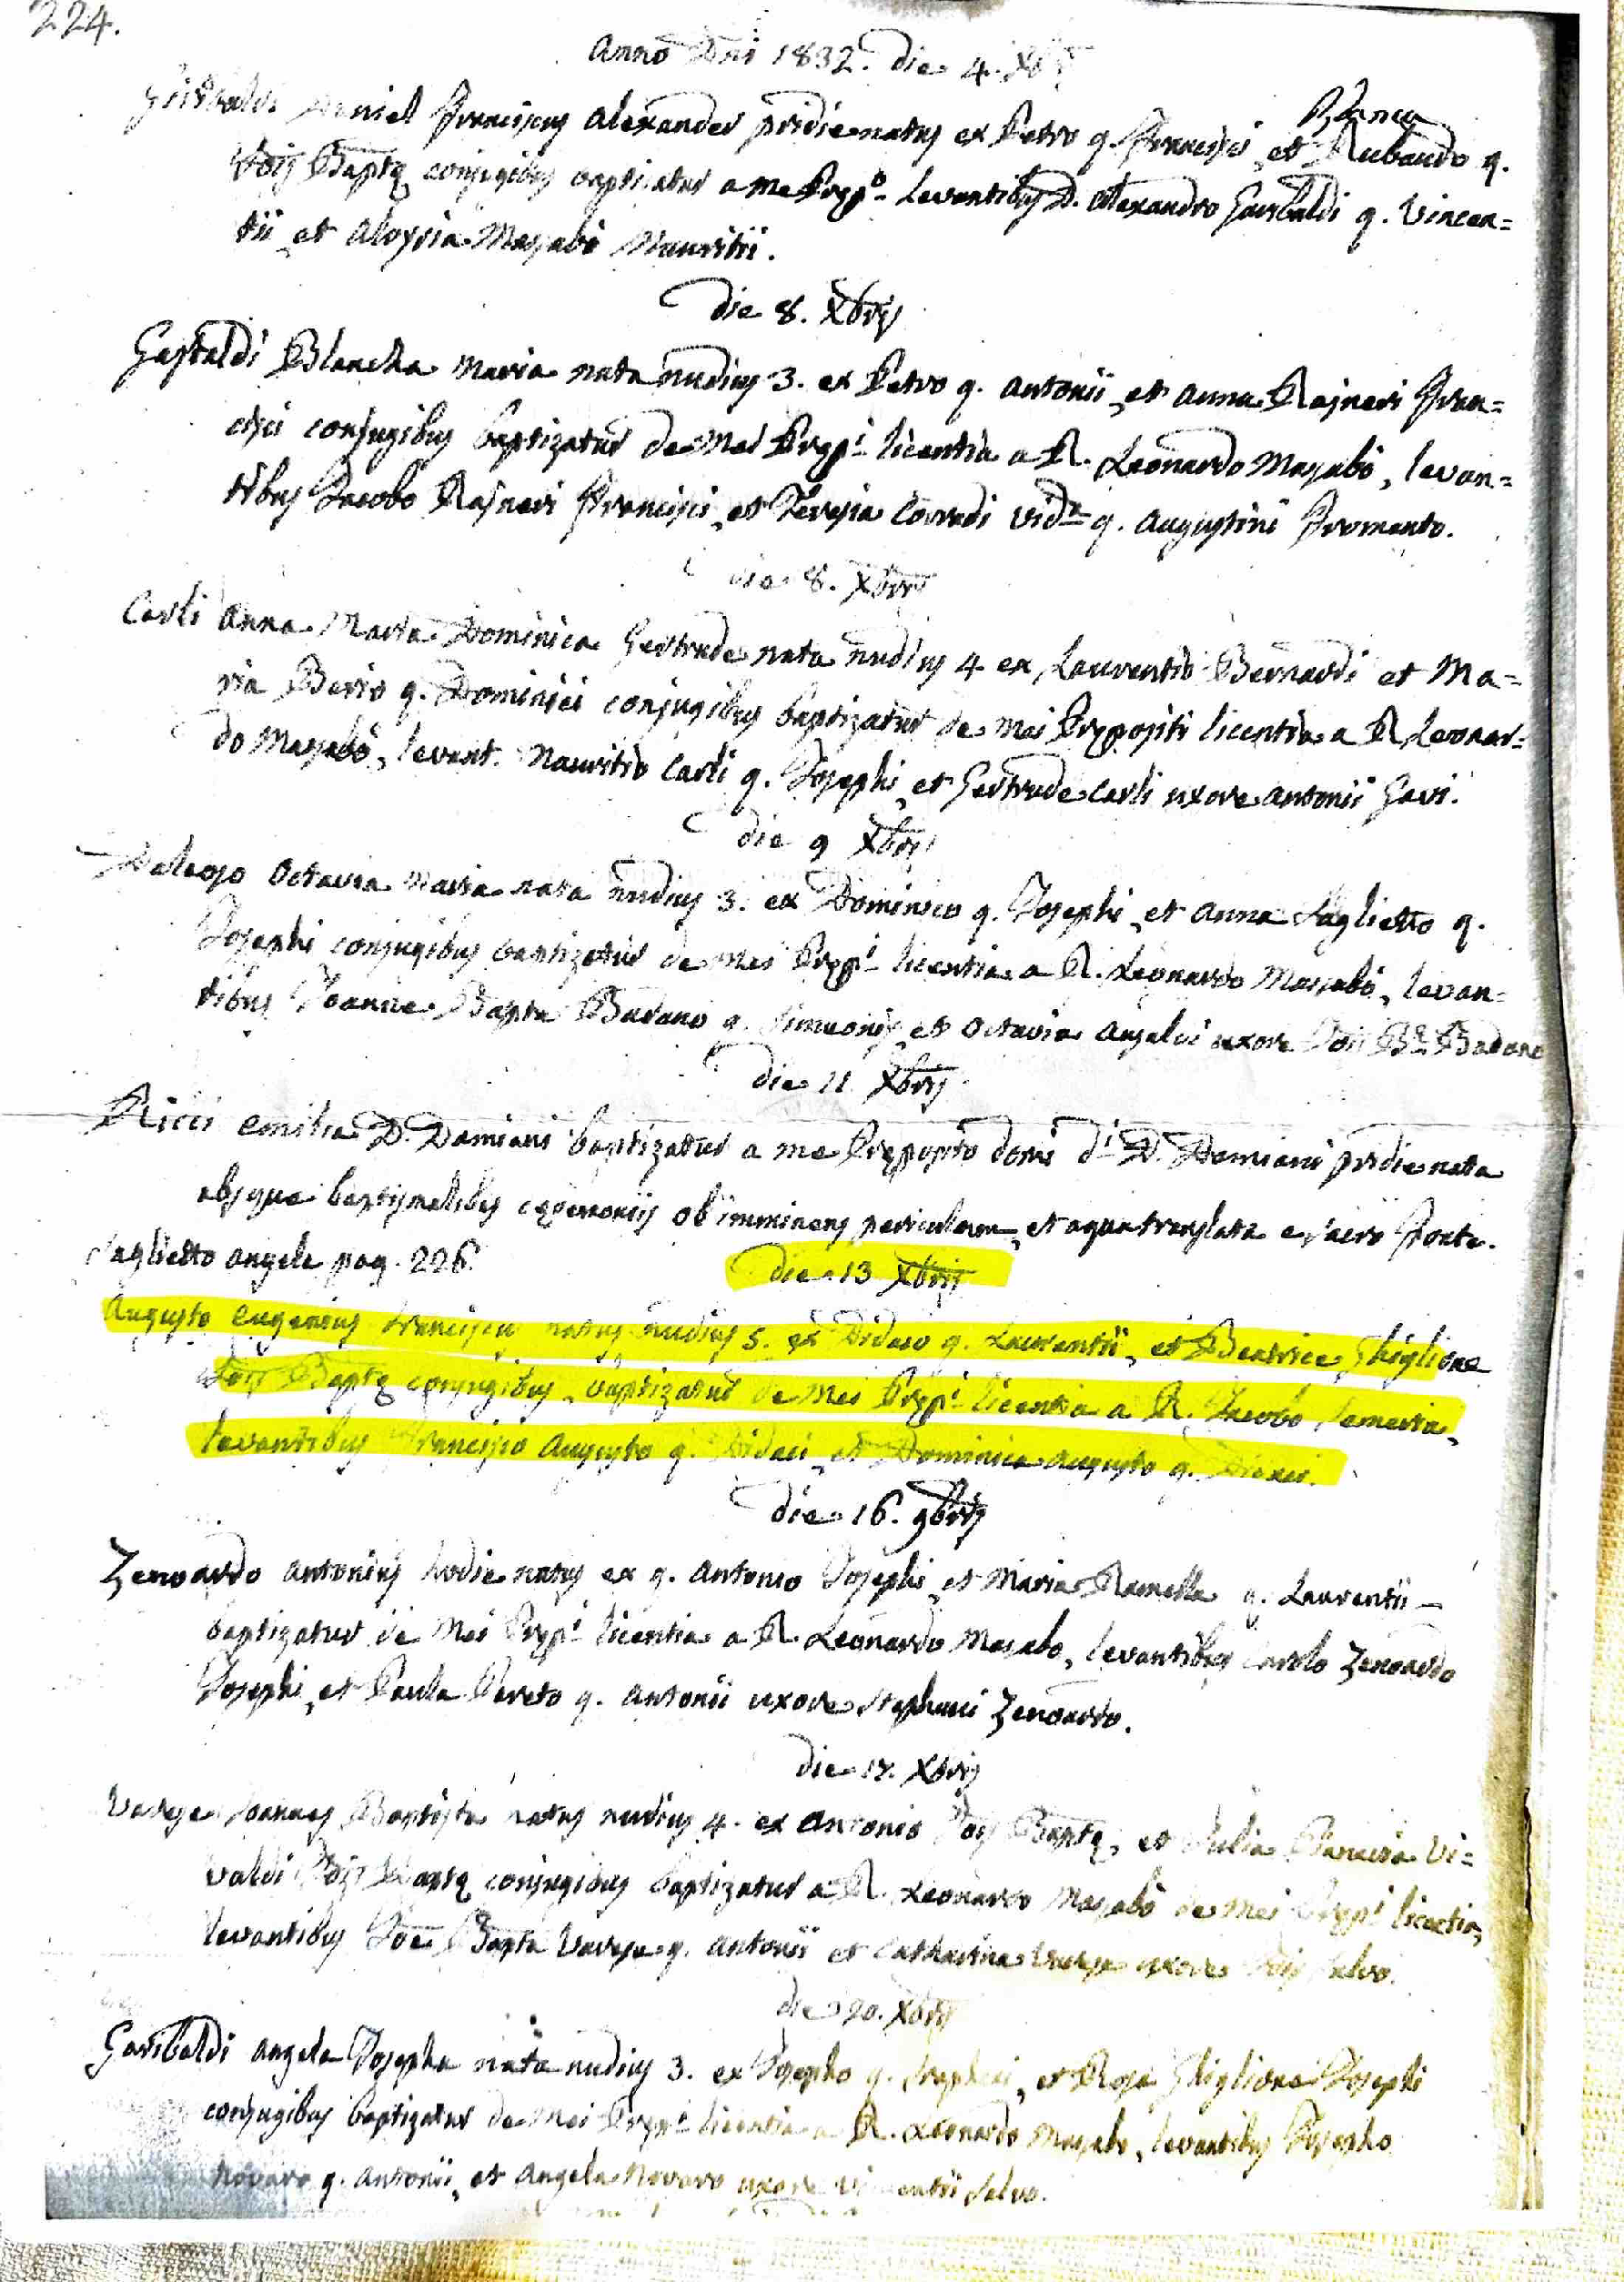 224.
Anno Dni 1832. die 4. Xb
Daniel Franciscus Alexander pridie natus ex Petro q. Francisci et Blanca Rubaudo q.
Jois Baptæ conjugibus baptizatur a me Præpo. levantibus D. Alexandro Garibaldi q. Vincen=
tii et Aloysia Massabò Mauritii.
die 8. Xbris
Gastaldi Blancha Maria nata nudius 3. ex Petro q. Antonii et Anna Rajneri Fran=
cisci conjugibus baptizatur de Mei Præpi licentia a R. Leonardo Massabò, levan=
tibus Jacobo Rajneri Francisci et Teresia Corradi vid. q. Augustini Fromento.
die 8. Xbris
Carli Anna Maria Dominica Gertrude nata nudius 4 ex Laurentio Bernardi et Ma=
ria Berio q. Dominici conjugibus baptizatur de Mei Præpositi licentia a R. Leonar=
do Massabò, levant. Mauritio Carli q. Josephi et Gertrude Carli uxore Antonii Gavi.
die 9 Xbris
Delego Octavia Maria nata nudius 3. ex Dominico q. Josephi et Anna Saglietto q.
Josephi conjugibus baptizatur de Mei Præpi licentia a R. Leonardo Massabò, levan=
tibus Joanne Bapta Badano q. Simeonis et Octavia uxore Jois Bæ Badano
die 11. Xbris
Ricci Emilia D. Damiani baptizatur a me Præposito domi di D. Damiani pridie nata
absque baptismalibus cæremoniis ob imminens periculum et aqua translata e sacro Fonte.
Saglietto Angela pag. 226.
die 13 Xbris
Augusto Eugenius Franciscus natus nudius 5. ex Didaco q. Laurentii, et Beatrice Ghiglione
Jois Baptæ conjugibus, baptizatur de Mei Præpi licentia a R. Jacobo Semeria,
levantibus Francisco Augusto q. Didaci et Dominica Augusto q.
die 16. 9bris
Zenoardo Antonius hodie natus ex q. Antonio Josephi et Maria Ramella q. Laurentii
baptizatur de Mei Præpi licentia a R. Leonardo Massabò, levantibus Carolo Zenoardo
Josephi, et Paula Pareto q. Antonii uxore Stephani Zenoardo.
die 17. Xbris
Varese Joannes Baptista natus nudius 4. ex Antonio Jois Baptæ, et Julia Vi=
valdi Jois Baptæ conjugibus baptizatur a R. Leonardo Massabò de Mei Præpi licentia,
levantibus Joe Bapta Varese q. Antonii et Catharina Varese uxore Jois Salvo.
die 20. Xbris
Garibaldi Angela Josepha nata nudius 3. ex Josepho q. Stephani, et Rosa Ghiglione Josephi
conjugibus baptizatur de Mei Præpi licentia a R. Leonardo Massabò, levantibus Josepho
Novaro q. Antonii, et Angela Novaro uxore Vincentii Salvo.